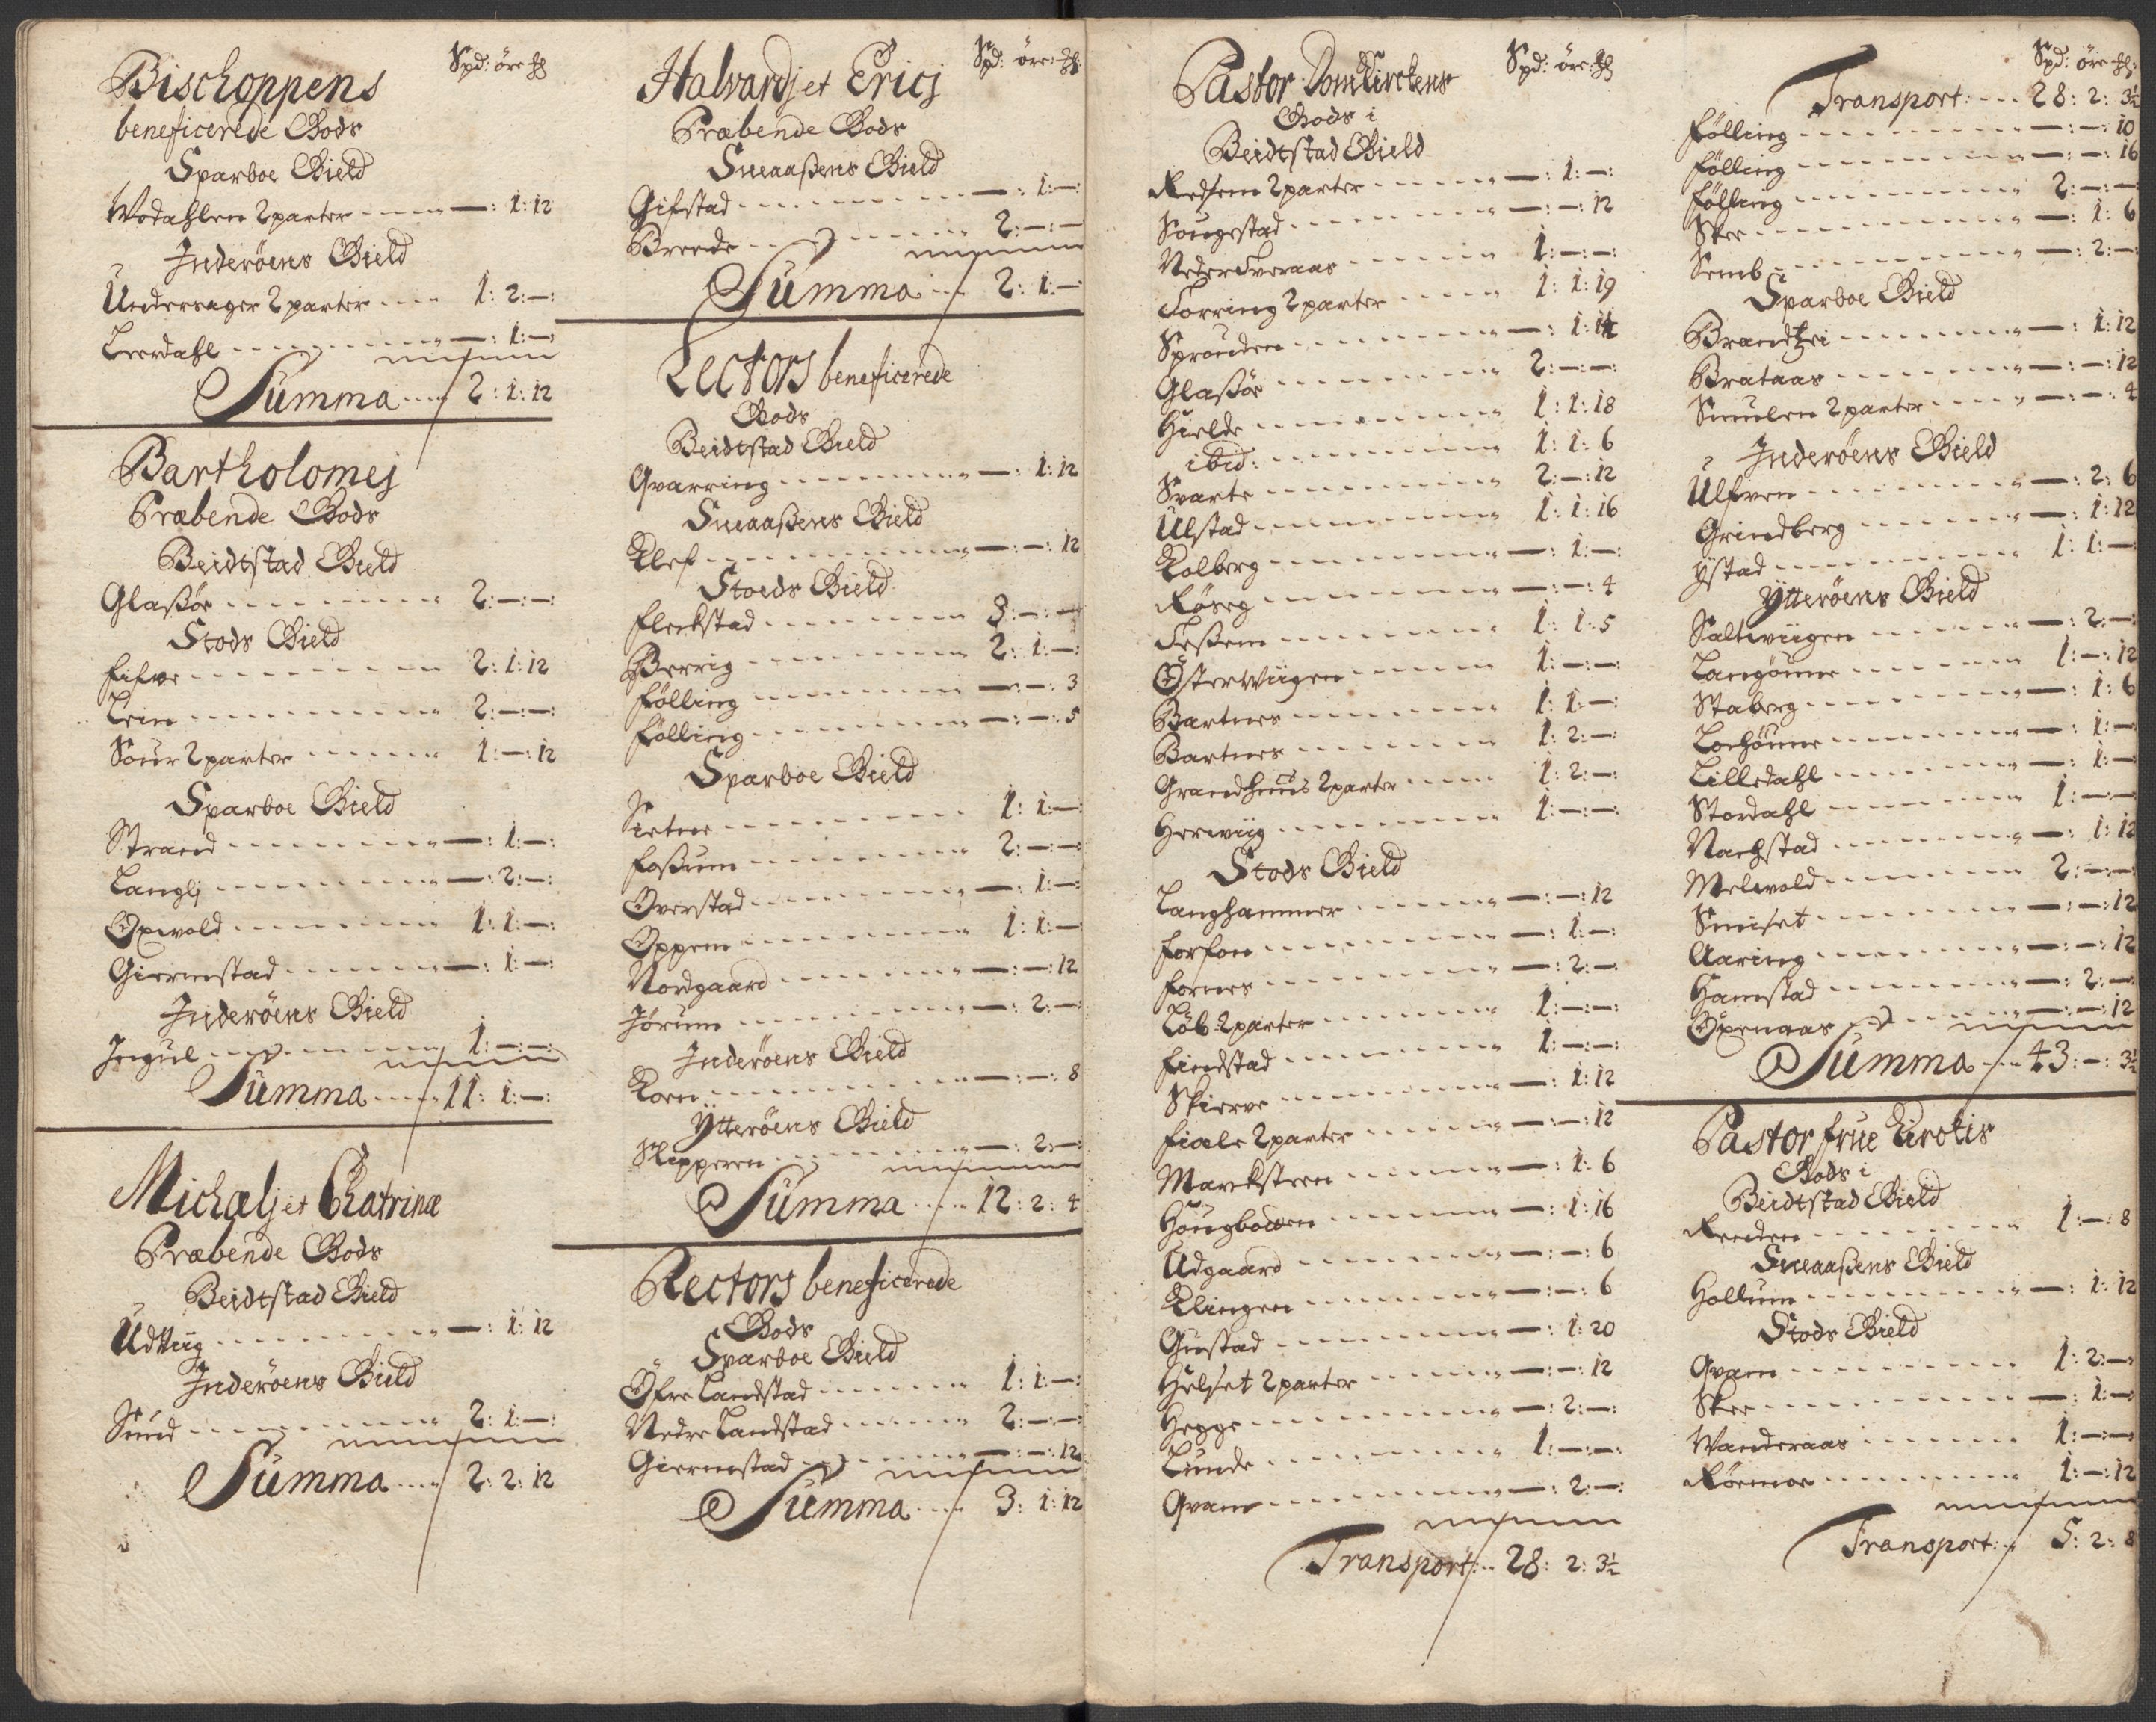 Spd: öre ℔
Bischoppens
beneficerede Gods
Sparboe Gield
Wodahlen 2 parter ---- —: 1: 12
Inderöens Gield
Undersager 2 parter ---- 1: 2: —:
Leerdahl ---- —: 1: —:
Summa ---- 2: 1: 12
Bartholomej
Præbende Gods
Beidtstad Gield
Glaßöe ---- 2: —: —:
Stods Gield
Fifve ---- 2: 1: 12
Lein ---- 2: —: —:
Sour 2 parter ---- 1: —: 12
Sparboe Gield
Strand ---- —: 1: —:
Langlj ---- —: 2: —:
Opwold ---- 1: 1: —:
Giermstad ---- —: 1: —:
Inderöens Gield
Jegul ---- 1: —: —:
Summa ---- 11: 1: —:
Michælj et Chatrinæ
Præbende Gods
Beidtstad Gield
Udviig ---- —: 1: 12
Inderöens Gield
Sund ---- 2: 1: —:
Summa ---- 2: 2: 12
Spd: öre: ℔:
Halvardj et Ericj
Præbende Gods
Sneaaßens Gield
Gifstad ---- —: 1: —:
Breede ---- 2: —: —
Summa ---- 2: 1: —
Lectors beneficerede
Gods
Beidtstad Gield
Qvarring ---- —: 1: 12
Sneaaßens Gield
Klef ---- —: —: 12
Stoeds Gield
Fleckstad ---- 3: —: —
Berrig ---- 2: 1: —:
Fölling ---- —: —: 3
Fölling ---- —: —: 5
Sparboe Gield
Sietne ---- 1: 1: —:
Foßum ---- 2: —: —:
Overstad ---- —: 1: —:
Oppem ---- 1: 1: —
Nordgaard ---- —: —: 12
Jörum ---- —: 2: —:
Inderöens Gield
Korn ---- —: —: 8
Ytteröens Gield
Klepperen ---- —: 2: —:
Summa ---- 12: 2: 4
Rectors beneficerede
Gods
Sparboe Gield
Öfre Landstad ---- 1: 1: —:
Nedre Landstad ---- 2: —: —:
Giermstad ---- —: —: 12
Summa ---- 3: 1: 12
Spd: öre: ℔
Pastor Domkirckens
Gods i
Beidtstad Gield
Redsem 2 parter ---- —: 1: —:
Sougestad ---- —: —: 12
Neder Tveraas ---- 1: —: —:
Torring 2 parter ---- 1: 1: 19
Sprouden ---- —: 1:
Glaßöe ---- 2: —: —:
Hielde ---- 1: 1: 18
ibid: ---- 1: 1: 6
Svarte ---- 2: —: 12
Ulstad ---- 1: 1: 16
Kolberg ---- —: 1: —:
Röseg ---- —: —: 4
Teßem ---- 1: 1: 5
Österwiigen ---- 1: —: —:
Bartnes ---- 1: 1: —:
Bartnes ---- 1: 2: —:
Grandhuus 2 parter ---- 1: 2: —:
Herwiig ---- 1: —: —:
Stods Gield
Langhammer ---- —: —: 12
Forfon ---- —: 1: —:
Fornes ---- —: 2: —:
Löb: 2 parter ---- 1: —: —:
Findstad ---- 1: —: —:
Skierve ---- —: 1: 12
Fiale 2 parter ---- —: —: 12
Marcksteen ---- —: 1: 6
Hougboden ---- —: 1: 16
Udgaard ---- —: —: 6
Klingen ---- —: —: 6
Gustad ---- —: 1: 20
Helset 2 parter ---- —: —: 12
Hegge ---- —: 2: —:
Lunde ---- 1: —: —:
Qvam ---- —: 2: —:
Transport: -- 28: 2: 3½
Spd: öre ℔:
Transport: --- 28: 2: 3½
Fölling ---- —: —: 10
Fölling ---- —: —: 16
Fölling ---- 2: —: —
Skee ---- —: 1: 6
Semb ---- —: 2: —:
Sparboe Gield
Brandtzei ---- —: 1: 12
Brataas ---- —: —: 12
Smulen 2 parter ---- —: —: 4
Inderöens Gield
Ulfven ---- —: 2: 6
Grindberg ---- —: 1: 12
Ystad ---- 1: 1: —
Ytteröens Gield
Saltwiigen ---- —: 2: —:
Langöune ---- 1: —: 12
Staberg ---- —: 1: 6
Lorhöune ---- —: 1: —
Lilledahl ---- —: 1: —
Stordahl ---- 1: —: —
Nachstad ---- —: 1: 12
Melwold ---- 2: —: —
Smiset ---- —: —: 12
Aaring ---- —: —: 12
Hamstad ---- —: 2: —
Öxenaas ---- —: —: 12
Summa ---- 43: —: 3½
Pastor frue Kirckis
Gods i
Beidtstad Gield
Renden ---- 1: —: 8
Sneaaßens Gield
Hollum ---- —: 1: 12
Stods Gield
Qvam ---- 1: 2: —:
Skee ---- —: 1: —:
Wanderaas ---- 1: —: —:
Rörmoe ---- 1: —: 12
Transport: -- 5: 2: 8